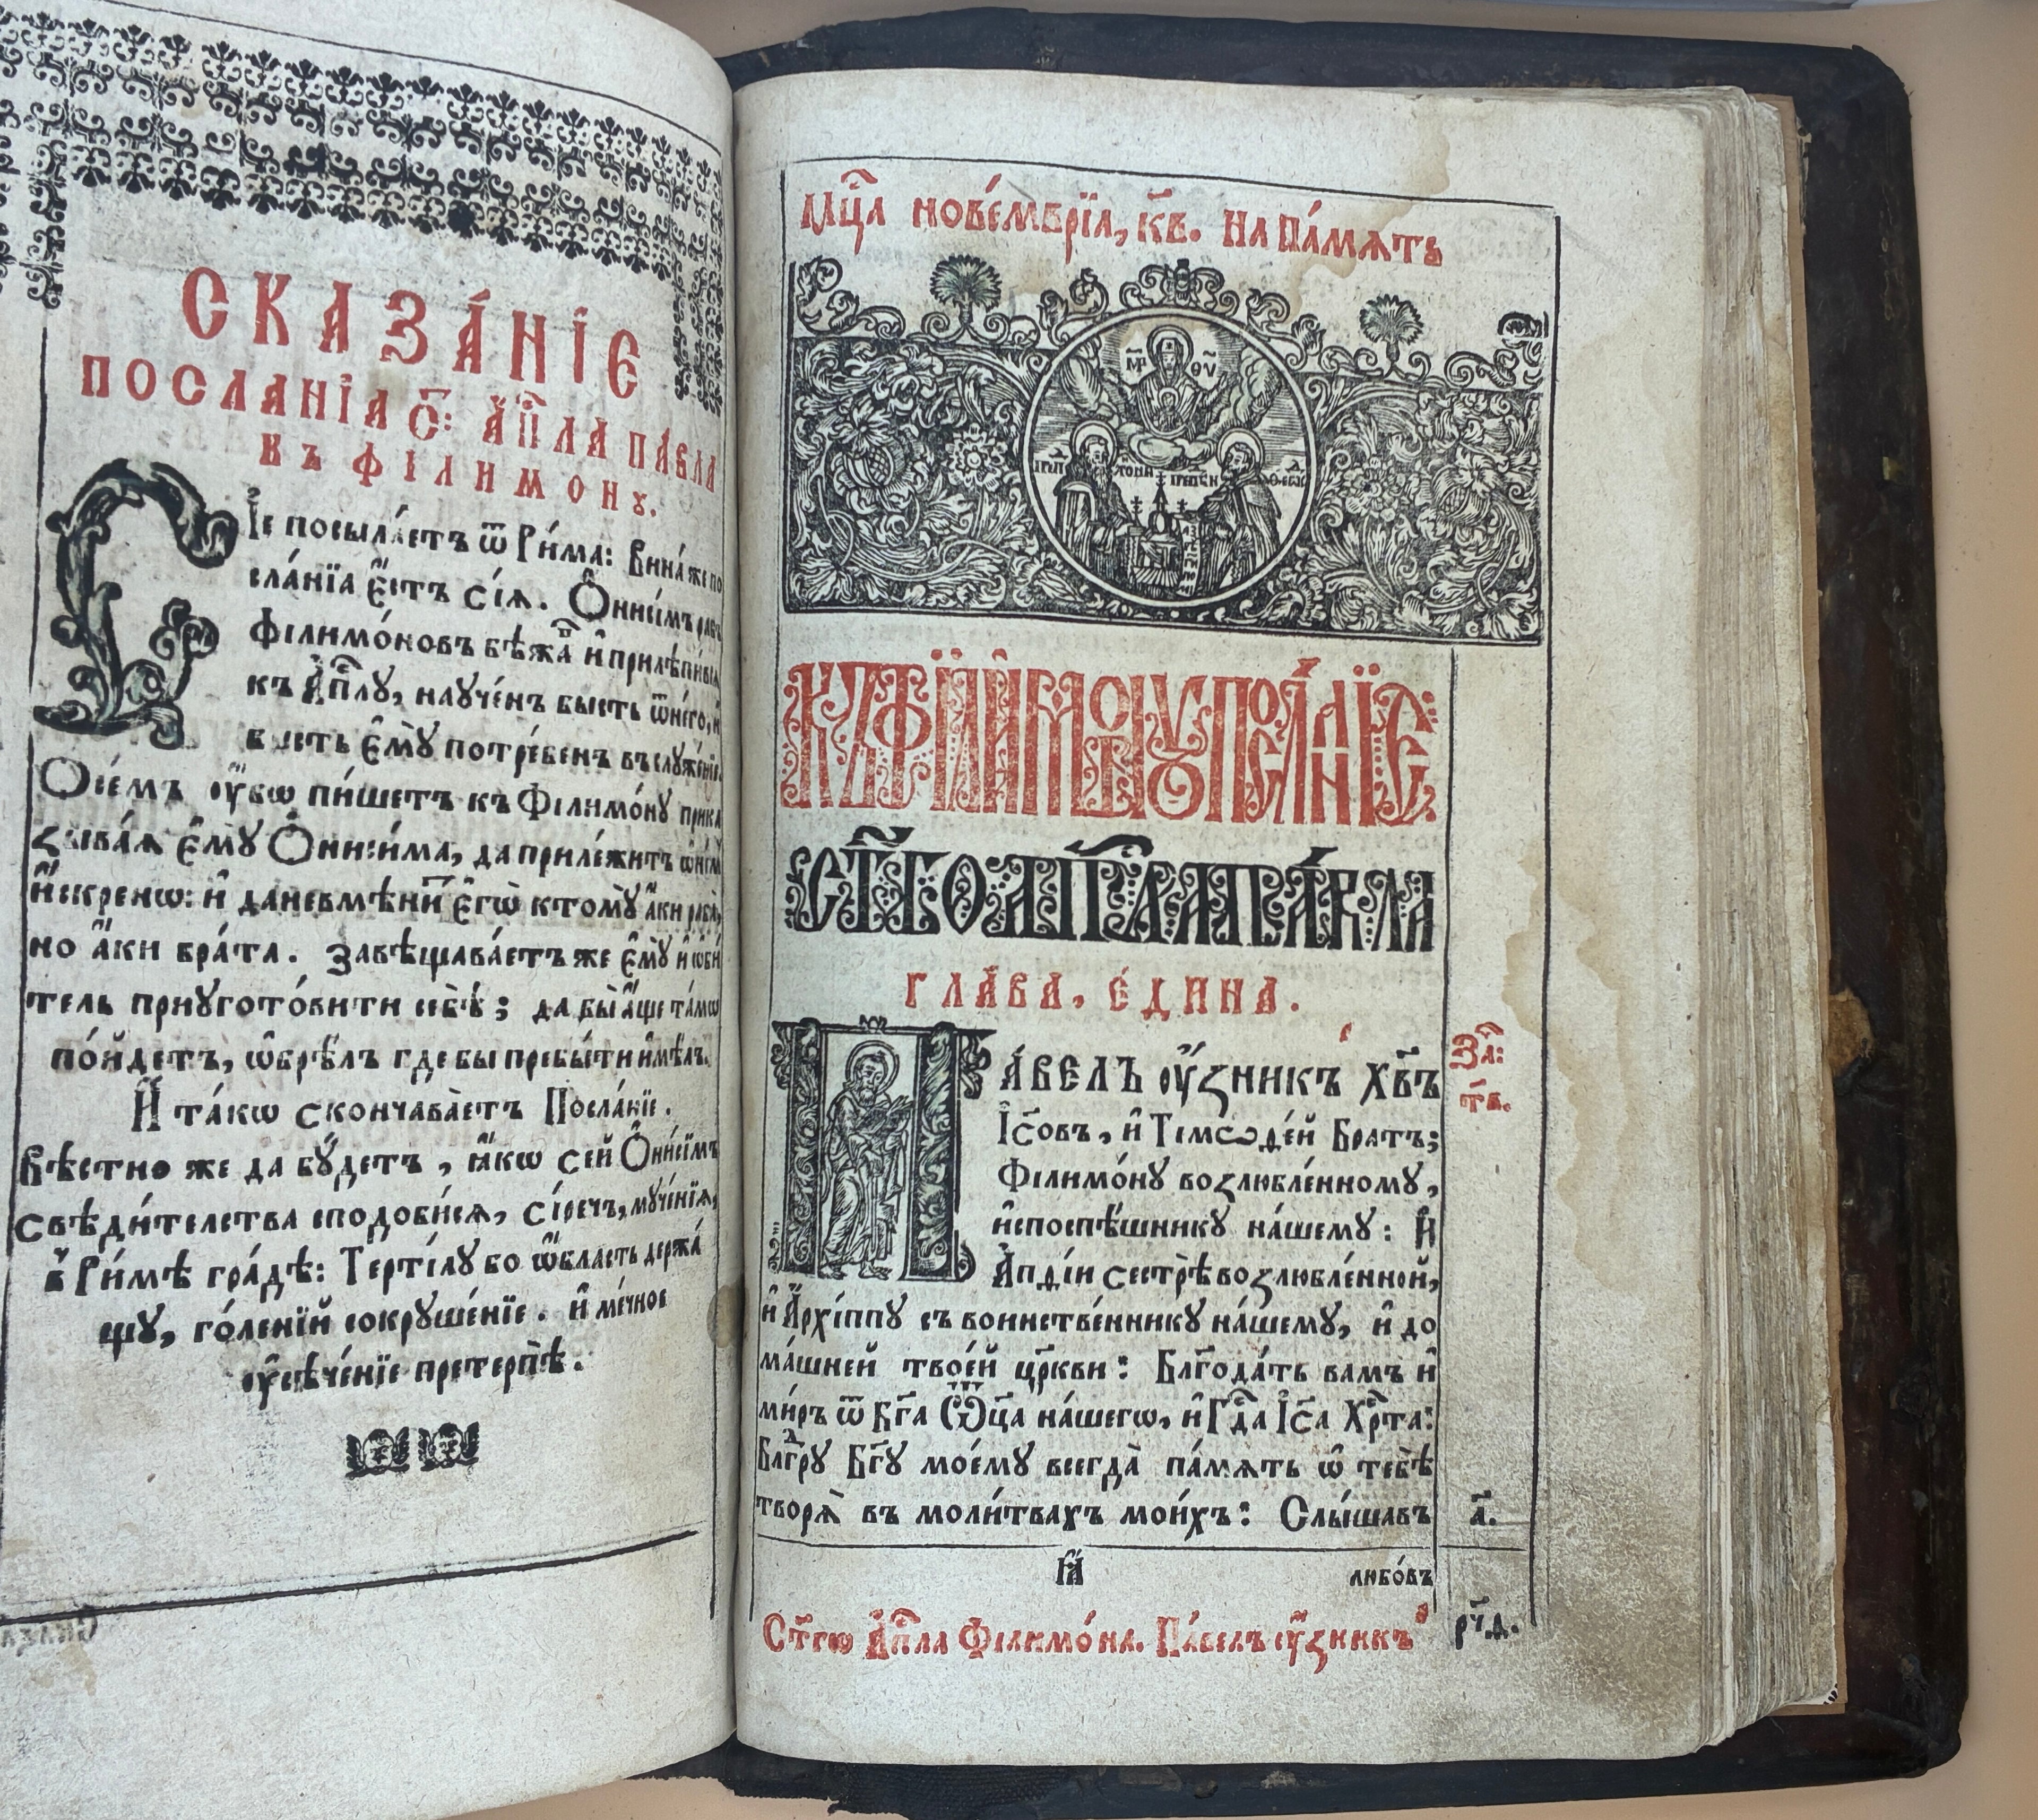 СКАЗА́НІЕ
ПОСЛАНІА С҃: А҆Пⷭ҇ЛА ПАВЛА
КЪ ФІЛИМОНꙋ.
СІ́е посыла́етъ ѿ Ри́ма: Вина́ же по
сла́нїа є҆́стъ сїѧ̀. Ѻ҆ниси́мъ рабъ
Філимо́новъ бѣжа̀ и҆ прилѣпи́всѧ
къ А҆пⷭ҇лꙋ, наꙋче́нъ бысть ѿ него̀, и҆
бысть є҆мꙋ̀ потре́бенъ въ слꙋже́нїе
Ѻ се́мъ ᲂу҆̀бѡ пи́шетъ къ Філимо́нꙋ прика
зыва́ѧ є҆мꙋ̀ Ѻ҆ниси́ма, да прилѣжи́тъ ѡ҆ не́мъ
и҆́скренѡ: и҆ да не вмѣни́тъ є҆гѡ̀ ктомꙋ̀ а҆́ки раба̀,
но а҆́ки бра́та. Завѣщава́етъ же є҆мꙋ̀ и҆ ѡ҆би́
тель приꙋгото́вити себѣ̀; да бы̀ а҆́ще та́мѡ
по́йдетъ, ѡ҆брѣ́лъ где бы пребы́ти и҆мѣ́лъ.
И҆ та́кѡ сконча́ваетъ Посла́нїе.
Вѣ́стно же да бꙋ́детъ, ꙗ҆́кѡ сей Ѻ҆ниси́мъ
свѣди́телства сподоби́сѧ, сі́речь, мꙋче́нїѧ,
в Ри́мѣ гра́дѣ: Терті́лꙋ бо ѡ҆́бласть держа́
щꙋ, го́ленїй сокрꙋше́нїе. и҆ ме́чное
ᲂу҆сѣче́нїе претерпѣ̀.
Мцⷭ҇а нове́мврїа, к҃в. на па́мѧть
МР҃ ѲꙊ҃
КЪ ФІЛИ́МОНꙊ ПОСЛА́НЇЕ
СТ҃ГО АПⷭ҇ЛА ПА́ВЛА
ГЛА́ВА, Е́ДИНА.
ПА́ВЕЛЪ ᲂу҆́зникъ Хв҃ъ
І҆с҃овъ, и҆ Тімоѳе́й Братъ;
Філимо́нꙋ возлюбле́нномꙋ,
и҆ споспѣ́шникꙋ на́шемꙋ: И҆
А҆пфі́и сестрѣ̀ возлюбле́нной,
и҆ А҆рхі́ппꙋ съвоинстве́нникꙋ на́шемꙋ, и҆ до
ма́шней твое́й цр҃кви: Блг҃ода́ть вамъ и҆
ми́ръ ѿ Бг҃а Ѻ҆ц҃а на́шегѡ, и҆ Гдⷭ҇а І҆с҃а Хрⷭ҇та:
Благⷣрꙋ Бг҃ꙋ моемꙋ̀ всегда̀ па́мѧть ѡ҆ тебѣ̀
творѧ̀ въ моли́твахъ мои́хъ: Слы́шавъ
За҃:
т҃в.
а҃.
любо́въ
Ст҃гѡ А҆пⷭ҇ла Філимо́на. Па́велъ ᲂу҆́зникъ
рч҃д.